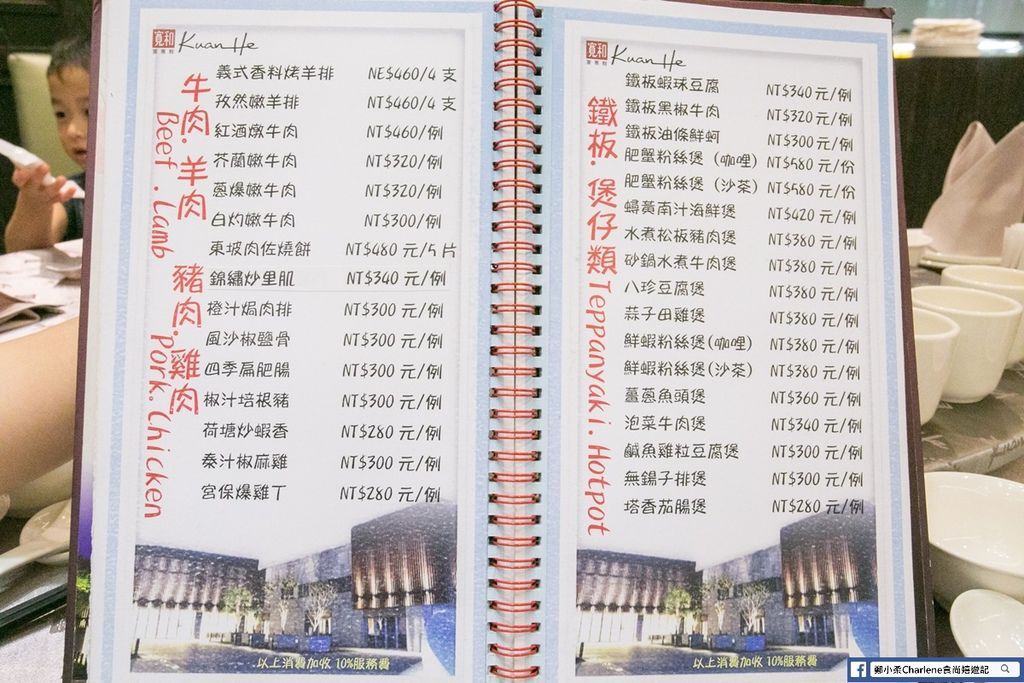 寬和
Kuan He
牛肉.羊肉
Beef .Lamb
豬肉.雞肉
pork.Chicken
義式香料烤羊排 NE$460/4 支
孜然嫩羊排 NT$460/4 支
紅酒燉牛肉 NT$460/例
芥蘭嫩牛肉 NT$320/例
蔥爆嫩牛肉 NT$320/例
白灼嫩牛肉 NT$300/例
東坡肉佐燒餅 NT$480 元/5 片
錦繡炒里肌 NT$340 元/例
橙汁焗肉排 NT$300 元/例
風沙椒鹽骨 NT$300 元/例
四季扁肥腸 NT$300 元/例
椒汁培根豬 NT$300 元/例
荷塘炒蝦香 NT$280 元/例
泰汁椒麻雞 NT$300 元/例
宮保爆雞丁 NT$280 元/例
以上消費加收 10%服務費
寬和
Kuan He
鐵板.煲仔類 Teppanyaki.Hotpot
鐵板蝦球豆腐 NT$340 元/例
鐵板黑椒牛肉 NT$320 元/例
鐵板油條鮮蚵 NT$300 元/例
肥蟹粉絲煲 (咖哩) NT$580 元/份
肥蟹粉絲煲 (沙茶) NT$580 元/份
蟳黃南汁海鮮煲 NT$420 元/例
水煮松板豬肉煲 NT$380 元/例
砂鍋水煮牛肉煲 NT$380 元/例
八珍豆腐煲 NT$380 元/例
蒜子田雞煲 NT$380 元/例
鮮蝦粉絲煲(咖哩) NT$380 元/例
鮮蝦粉絲煲(沙茶) NT$380 元/例
薑蔥魚頭煲 NT$360 元/例
泡菜牛肉煲 NT$340 元/例
鹹魚雞粒豆腐煲 NT$300 元/例
無錫子排煲 NT$300 元/例
塔香茄腸煲 NT$280 元/例
以上消費加收 10%服務費
鄉小柔Charlene食尚嬉遊記